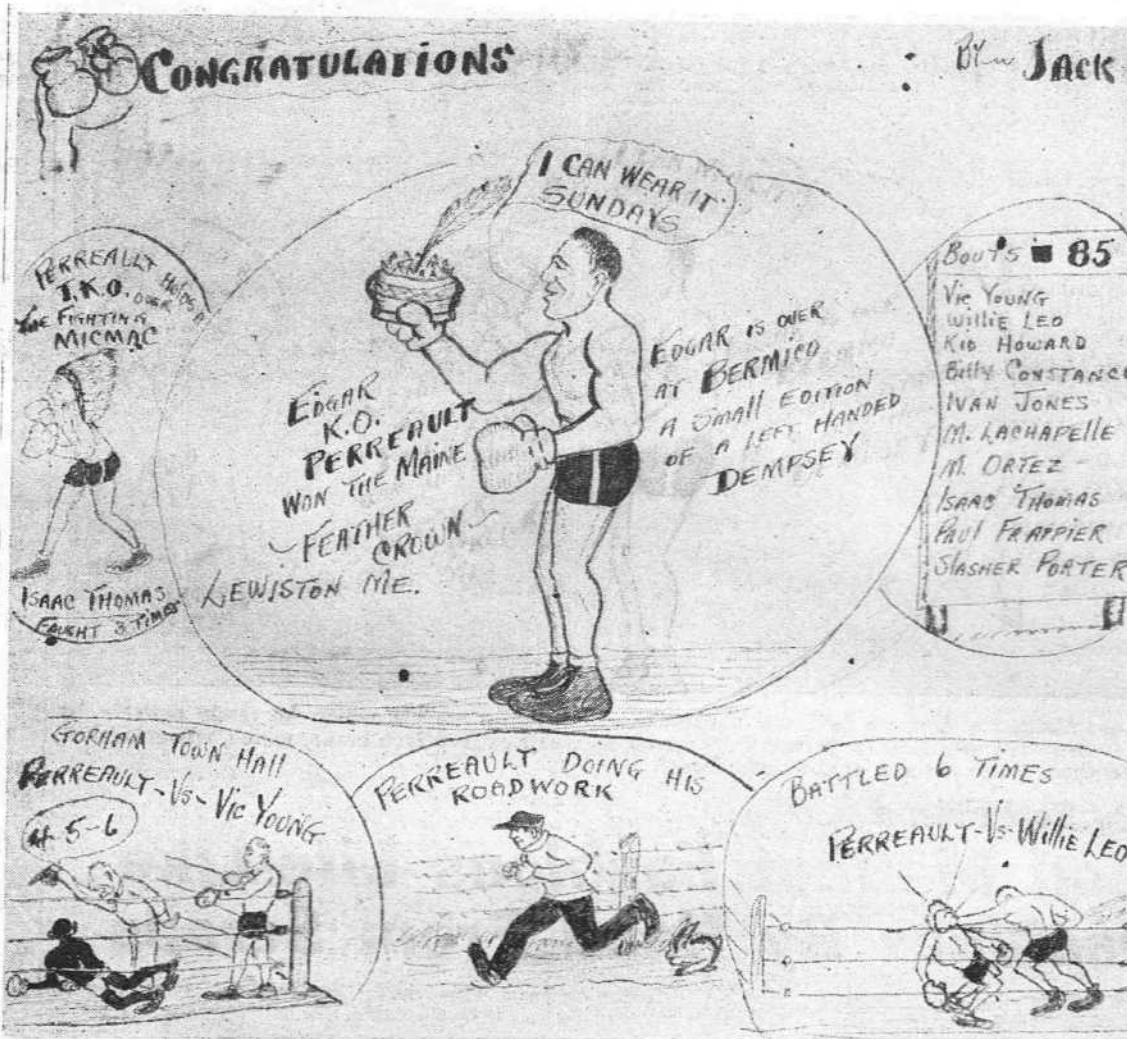 CONGRATULATIONS
BY JACK
I CAN WEAR IT
SUNDAYS
PERREAULT HOLDS A
T.K.O. OVER
THE FIGHTING
MICMAC
ISAAC THOMAS
FAUGHT 3 TIMES
EDGAR
K.O.
PERREAULT
WON THE MAINE
FEATHER
CROWN
LEWISTON ME.
EDGAR IS OVER
AT BERMICO
A SMALL EDITION
OF A LEFT HANDED
DEMPSEY
BOUTS 85
VIC YOUNG
WILLIE LEO
KID HOWARD
BILLY CONSTANCE
IVAN JONES
M. LACHAPELLE
M. ORTEZ
ISAAC THOMAS
PAUL FRAPPIER
SLASHER PORTER
GORHAM TOWN HALL
PERREAULT-VS-VIC YOUNG
4-5-6
PERREAULT DOING HIS
ROADWORK
BATTLED 6 TIMES
PERREAULT-VS-WILLIE LEO